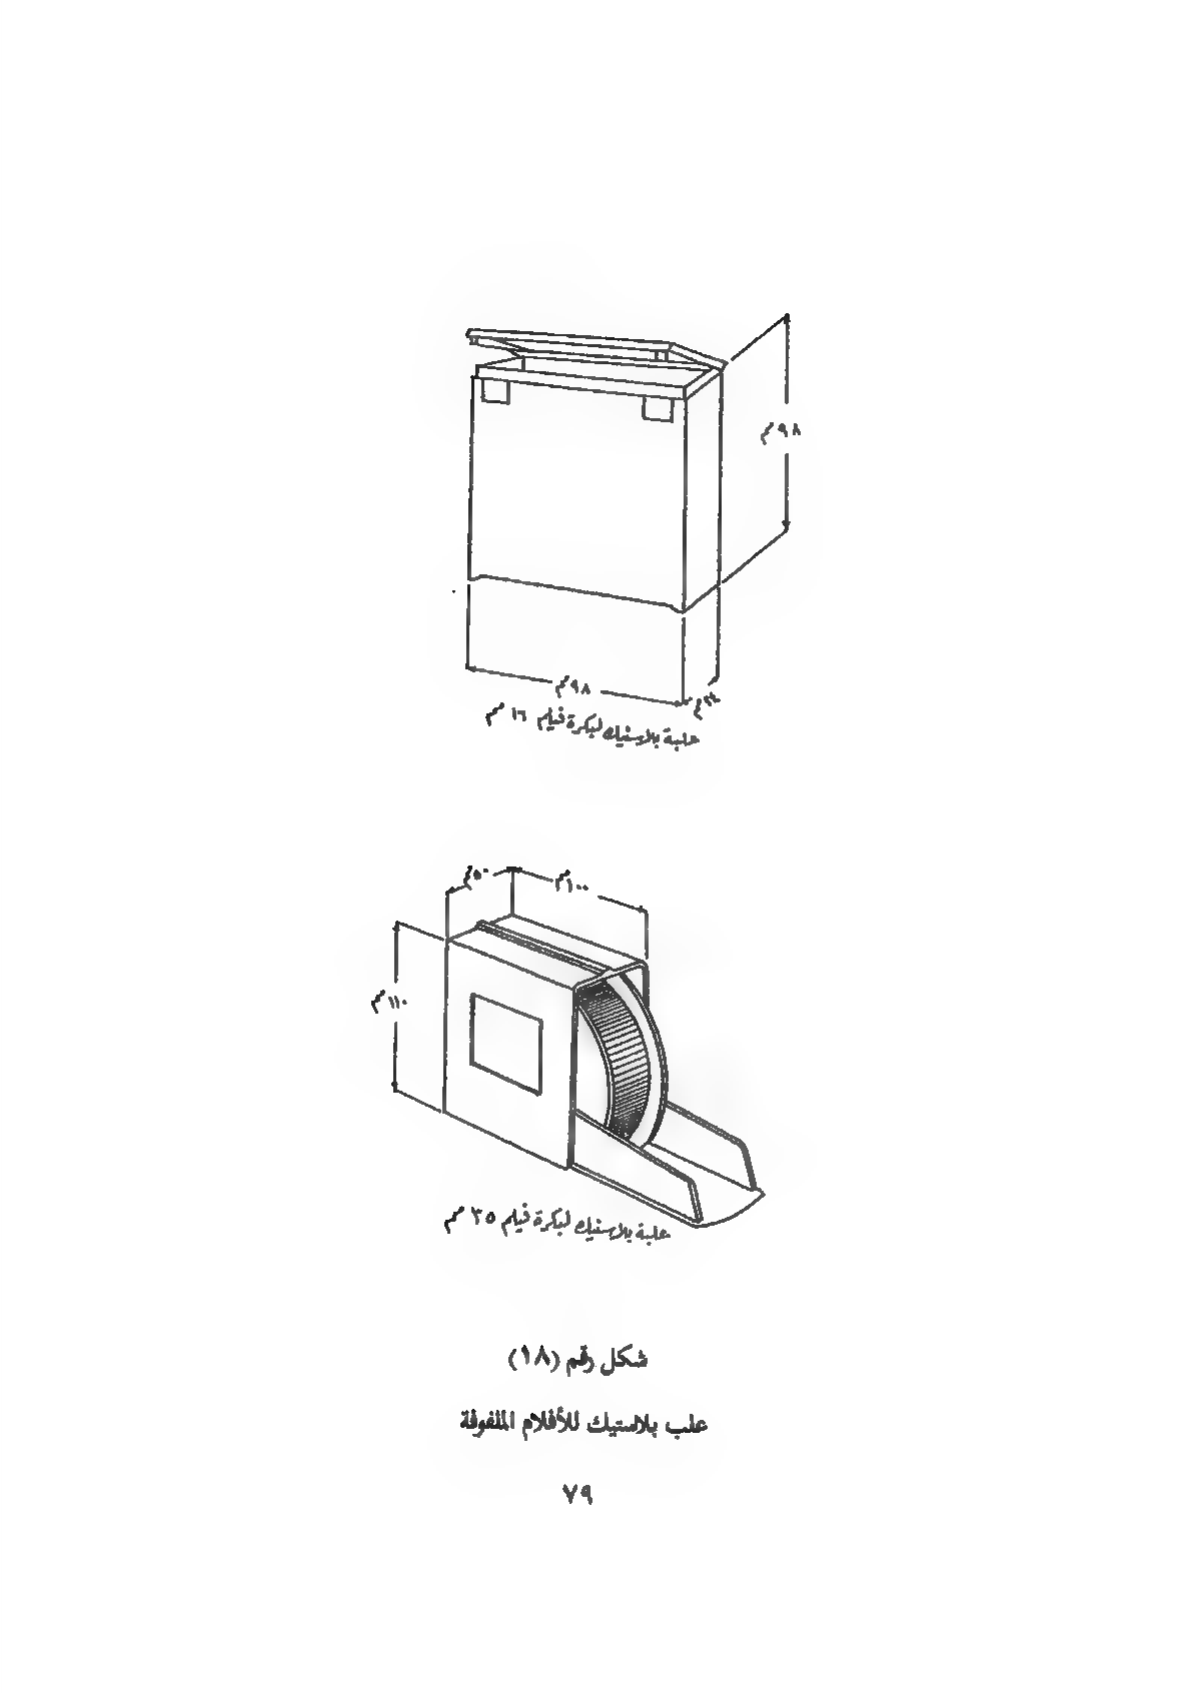 ٩٨مم
٩٨مم
علبة بلاستيك لبكرة فيلم ١٦ مم
٥٠مم
١٠٠مم
١١٠مم
علبة بلاستيك لبكرة فيلم ٣٥ مم
شكل رقم (١٨)
علب بلاستيك للأفلام الملفوفة
٧٩